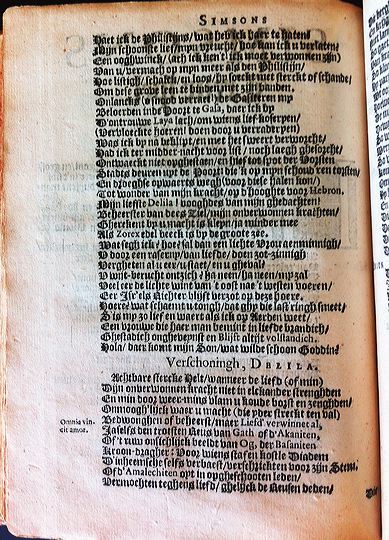 SIMSONS
Haet ick de Philistijns/ wat heb ick haer te haten/
Mijn schoonste lief/ mijn vreucht/ hoe kan ick u verlaten/
Een ooghwinck/ (ach ick ken't ick moet verwonnen zijn)
Van u/ vermach op mijn meer als den Philistijn/
Hoe listigh/ schalck/ en loos/ hy sorckt met sterckt of schande/
Om dese grove leen te binden met zijn banden.
Onlancks/ verraet/ de Gasiteren my
Beloerden inde Poort te Gasa, daer ick by
D'ontrouwe Laya lach/ om wiens lief
Vervloeckte hoeren! doen door u verraderyen/
Was ick by na beknipt/ en met het sweert verworght/
Had ick ter midder-nacht voor list/ noch laegh ghesorght/
Ontwaeckt niet opghestaen/ en hief tot spot der Vorsten
Stadts deuren upt de Poort: die'k op mijn schoud'ren torsten/
En droeghse opwaerts wegh/ (voor diese halen kon)
Tot wonder van mijn kracht/ op d'hooghte voor Hebron.
Mijn liefste Delila! vooghdes van mijn ghedachten!
Beheerster van dees Ziel/ mijn onverwonnen krachten/
Ghereeckent by u macht is kleyn/ ja minder mee
Als Zorex edel beeck is by de groote zee.
Wat segh ick/ hoe/ sal dan een lichte Vrou
U door een raserny/ van liefde/ doen zot-zinnigh
Vergheten al u eer/ u staet/ en u gheval?
U wijt-berucht ontzich? ha neen/ ha neen/ mp zal
Veel eer de lichte wint van 't oost nae 't westen voeren/
Eer Isr'els Richter blijft verzot op dese hoere.
Hoere? wat schaemt u tongh/ dat ghy die last'ringh smeet/
S'is mp zo lief en waert als ick op Aerden weet/
Een vrouwe die haer man bemint in liefde brandich/
Ghestadich ongheveynst en Blijft altijt volstandich.
Hola/ daer komt mijn Son/ wat wilde schoon Goddin?
Verschoningh, DELILA.
Achtbare stercke Helt/ wanneer de liefd (of min)
Dijn onverwonnen kracht niet in elckander strenghden
En min door weer-mins vlam u koude borst en zenghden/
Onmoogh'lijck waer u macht (die yder streckt ten val)
Bedwonghen of beheerst/ maer Liefd' verwinnet al,
Omnia vincit amor.
Jaselfs den trotsten Reus van Gath of d'Akaniten,
Of 't ruw onsichlijck beeldt van Og, der Basaniten
Kroon-dragher: Voor wiens staf en kostle Diadem
D'inheemsche selfs verbaest/ verschrickten voor zijn Stem.
Of d'Amalechiten opt in opghestooten leden/
Vermochten teghens liefd/ ghelijck de Reusen deden/